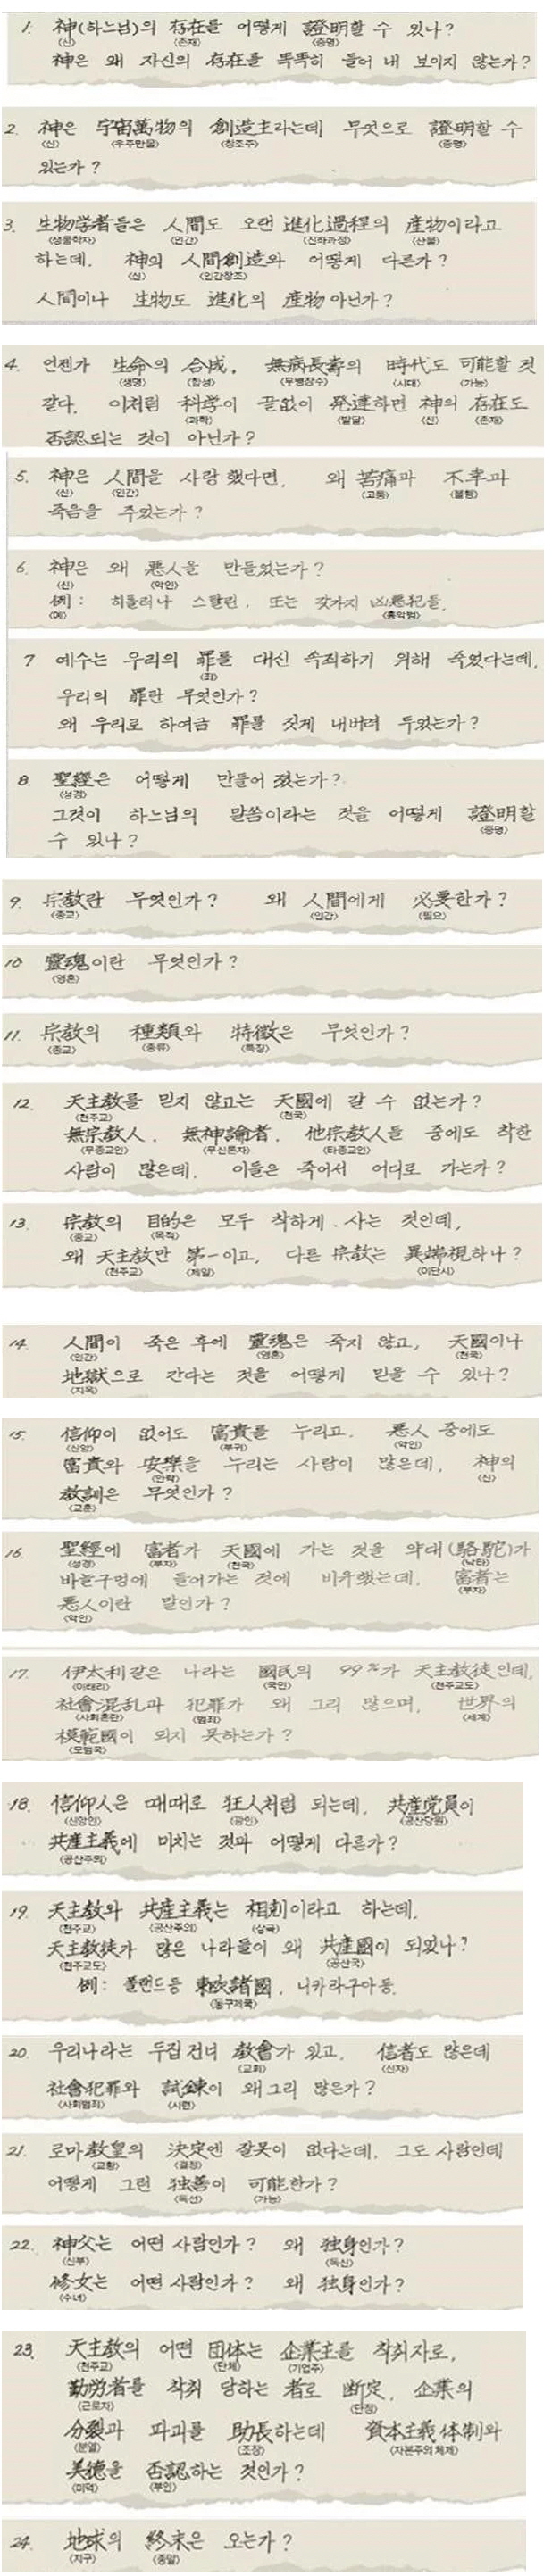 1. 神(하느님)의 存在를 어떻게 證明할 수 있나?
(신) (존재) (증명)
神은 왜 자신의 存在를 똑똑히 들어 내 보이지 않는가?
2. 神은 宇宙萬物의 創造主라는데 무엇으로 證明할 수
(신) (우주만물) (창조주) (증명)
있는가?
3. 生物学者들은 人間도 오랜 進化過程의 産物이라고
(생물학자) (인간) (진화과정) (산물)
하는데, 神의 人間創造와 어떻게 다른가?
(신) (인간창조)
人間이나 生物도 進化의 産物 아닌가?
4. 언젠가 生命의 合成, 無病長壽의 時代도 可能할 것
(생명) (합성) (무병장수) (시대) (가능)
같다. 이처럼 科学이 끝없이 発達하면 神의 存在도
(과학) (발달) (신) (존재)
否認되는 것이 아닌가?
5. 神은 人間을 사랑했다면, 왜 苦痛과 不幸과
(신) (인간) (고통) (불행)
죽음을 주었는가?
6. 神은 왜 惡人을 만들었는가?
(신) (악인)
例: 히틀러나 스탈린, 또는 갖가지 凶惡犯들.
(예) (흉악범)
7 예수는 우리의 罪를 대신 속죄하기 위해 죽었다는데,
(죄)
우리의 罪란 무엇인가?
왜 우리로 하여금 罪를 짓게 내버려 두었는가?
8. 聖經은 어떻게 만들어 졌는가?
(성경)
그것이 하느님의 말씀이라는 것을 어떻게 證明할
(증명)
수 있나?
9. 宗教란 무엇인가? 왜 人間에게 必要한가?
(종교) (인간) (필요)
10 靈魂이란 무엇인가?
(영혼)
11. 宗教의 種類와 特徵은 무엇인가?
(종교) (종류) (특징)
12. 天主教를 믿지 않고는 天國에 갈 수 없는가?
(천주교) (천국)
無宗教人, 無神論者, 他宗教人들 中에도 착한
(무종교인) (무신론자) (타종교인)
사람이 많은데, 이들은 죽어서 어디로 가는가?
13. 宗教의 目的은 모두 착하게 사는 것인데,
(종교) (목적)
왜 天主教만 第一이고, 다른 宗教는 異端視하나?
(천주교) (제일) (이단시)
14. 人間이 죽은 후에 靈魂은 죽지 않고, 天國이나
(인간) (영혼) (천국)
地獄으로 간다는 것을 어떻게 믿을 수 있나?
(지옥)
15. 信仰이 없어도 富貴를 누리고, 惡人 중에도
(신앙) (부귀) (악인)
富貴와 安樂을 누리는 사람이 많은데, 神의
(안락) (신)
教訓은 무엇인가?
(교훈)
16. 聖經에 富者가 天國에 가는 것을 약대(駱駝)가
(성경) (부자) (천국) (낙타)
바늘구멍에 들어가는 것에 비유했는데, 富者는
(부자)
惡人이란 말인가?
(악인)
17. 伊太利같은 나라는 國民의 99%가 天主教徒인데,
(이태리) (국민) (천주교도)
社會混乱과 犯罪가 왜 그리 많으며, 世界의
(사회혼란) (범죄) (세계)
模範國이 되지 못하는가?
(모범국)
18. 信仰人은 때때로 狂人처럼 되는데, 共産党員이
(신앙인) (광인) (공산당원)
共産主義에 미치는 것과 어떻게 다른가?
(공산주의)
19. 天主教와 共産主義는 相剋이라고 하는데,
(천주교) (공산주의) (상극)
天主教徒가 많은 나라들이 왜 共産國이 되었나?
(천주교도) (공산국)
例: 폴랜드등 東欧諸國, 니카라구아등.
(동구제국)
20. 우리나라는 두집 건너 教會가 있고, 信者도 많은데
(교회) (신자)
社會犯罪와 試錬이 왜 그리 많은가?
(사회범죄) (시련)
21. 로마教皇의 決定엔 잘못이 없다는데, 그도 사람인데
(교황) (결정)
어떻게 그런 独善이 可能한가?
(독선) (가능)
22. 神父는 어떤 사람인가? 왜 独身인가?
(신부) (독신)
修女는 어떤 사람인가? 왜 独身인가?
(수녀)
23. 天主教의 어떤 団体는 企業主를 착취자로,
(천주교) (단체) (기업주)
勤労者를 착취 당하는 者로 断定, 企業의
(근로자) (단정)
分裂과 파괴를 助長하는데 資本主義体制와
(분열) (조장) (자본주의 체제)
美德을 否認하는 것인가?
(미덕) (부인)
24. 地球의 終末은 오는가?
(지구) (종말)